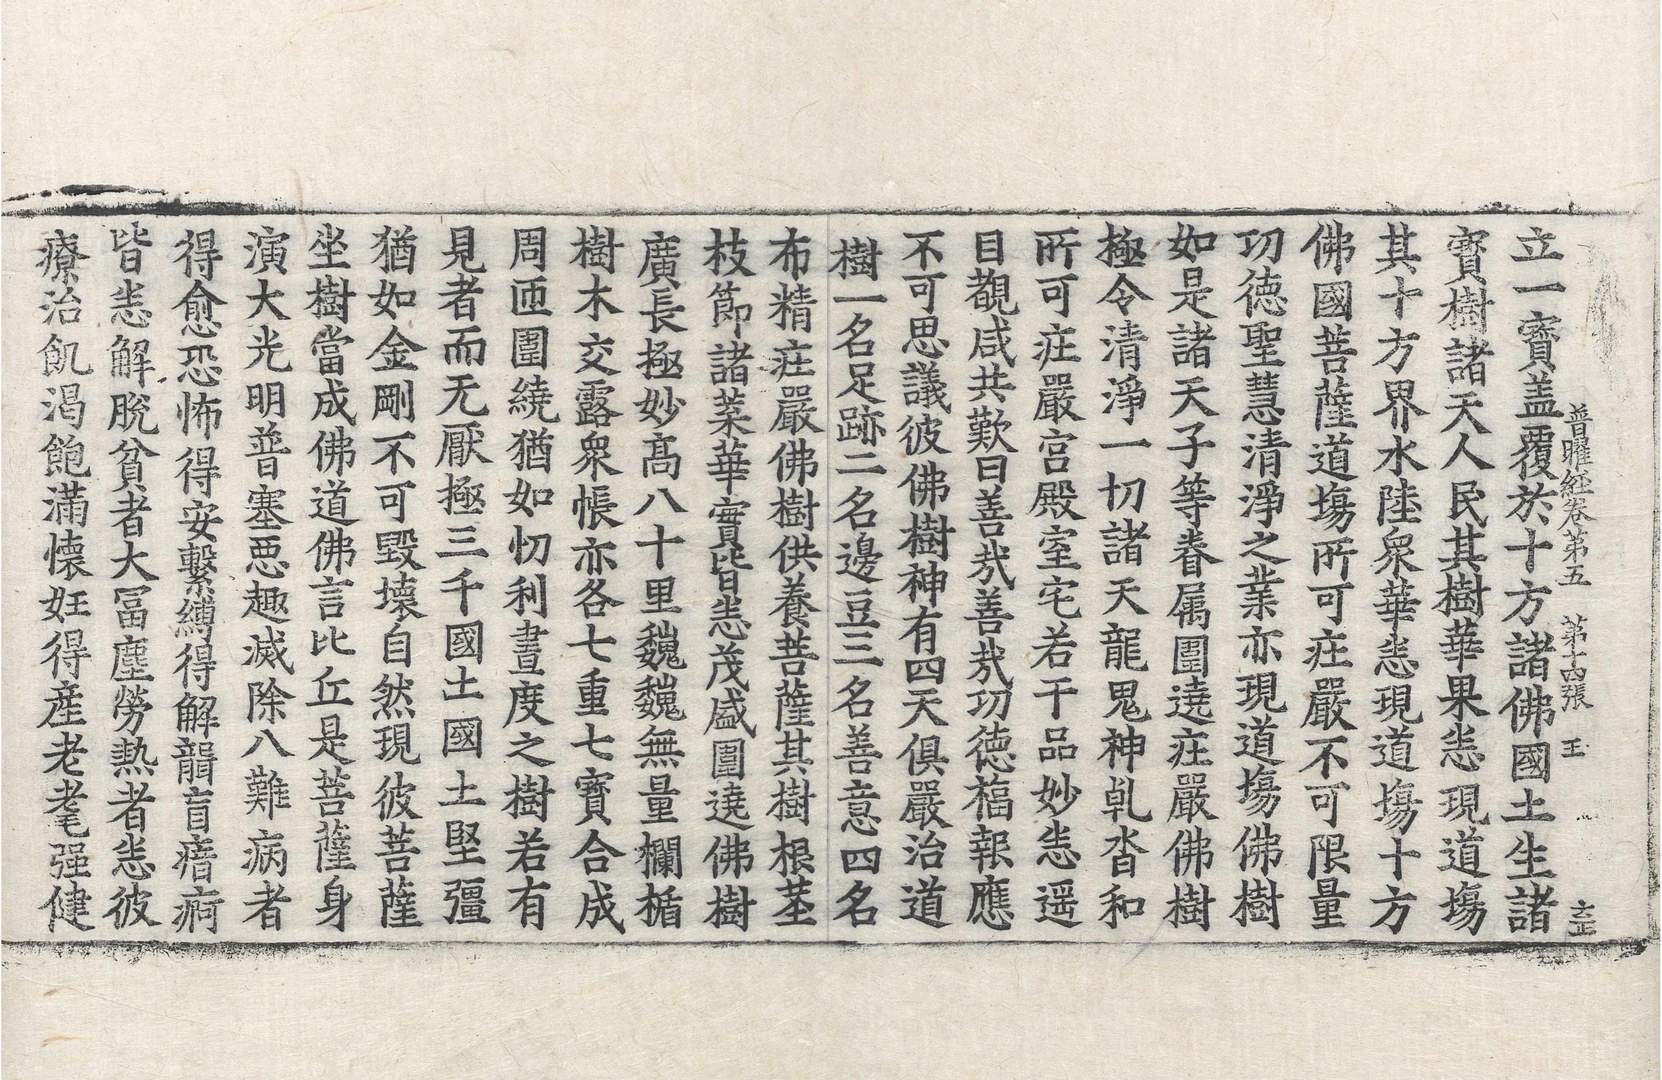 普曜經卷第五　第十四張　王
立一寶盖覆於十方諸佛國土生諸
寶樹諸天人民其樹華果悉現道場
其十方界水陸衆華悉現道場十方
佛國菩薩道場所可莊嚴不可限量
功德聖慧清淨之業亦現道場佛樹
如是諸天子等眷属圍遶莊嚴佛樹
極令清淨一切諸天龍鬼神乹沓和
所可莊嚴宮殿室宅若干品妙悉遥
目覩咸共歎曰善㢤善㢤功德福報應
不可思議彼佛樹神有四天俱嚴治道
樹一名足跡二名邊豆三名善意四名
布精莊嚴佛樹供養菩薩其樹根茎
枝節諸菜華實皆悉茂盛圍遶佛樹
廣長極妙高八十里巍巍無量欄楯
樹木交露衆帳亦各七重七寶合成
周匝圍繞猶如忉利晝度之樹若有
見者而无厭極三千國土國土堅彊
猶如金剛不可毀壞自然現彼菩薩
坐樹當成佛道佛言比丘是菩薩身
演大光明普塞惡趣滅除八難病者
得愈恐怖得安繫縛得解聾盲瘖痾
皆悉解脫貧者大冨塵勞熱者悉彼
療治飢渴飽滿懷妊得産老耄强健